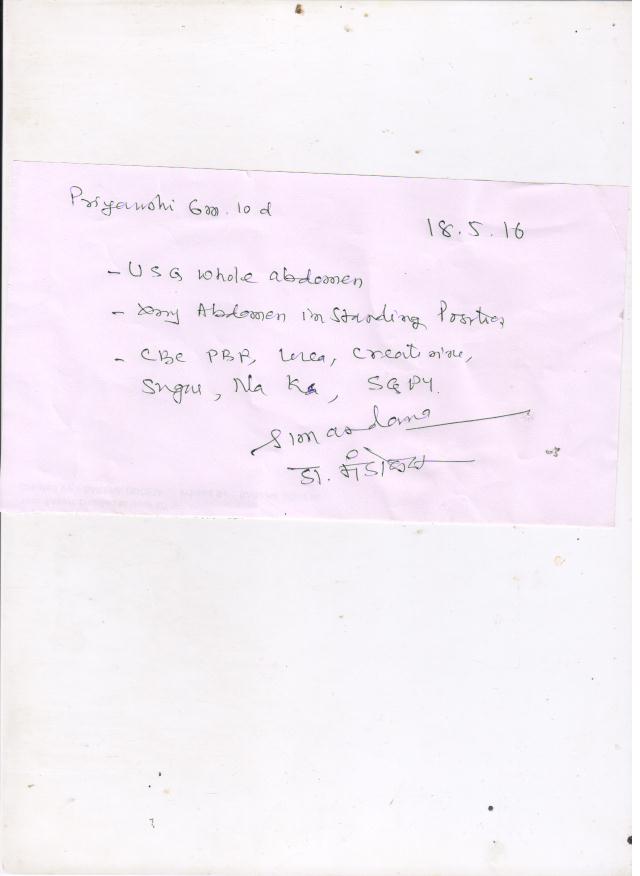 Priyanshi 6m. 10 d
18.5.16
- USG whole abdomen
- Xray Abdomen in Standing Position
- CBC PBP, Urea, Creatinine,
Sugar, Na Ka, SGPT.
डा.